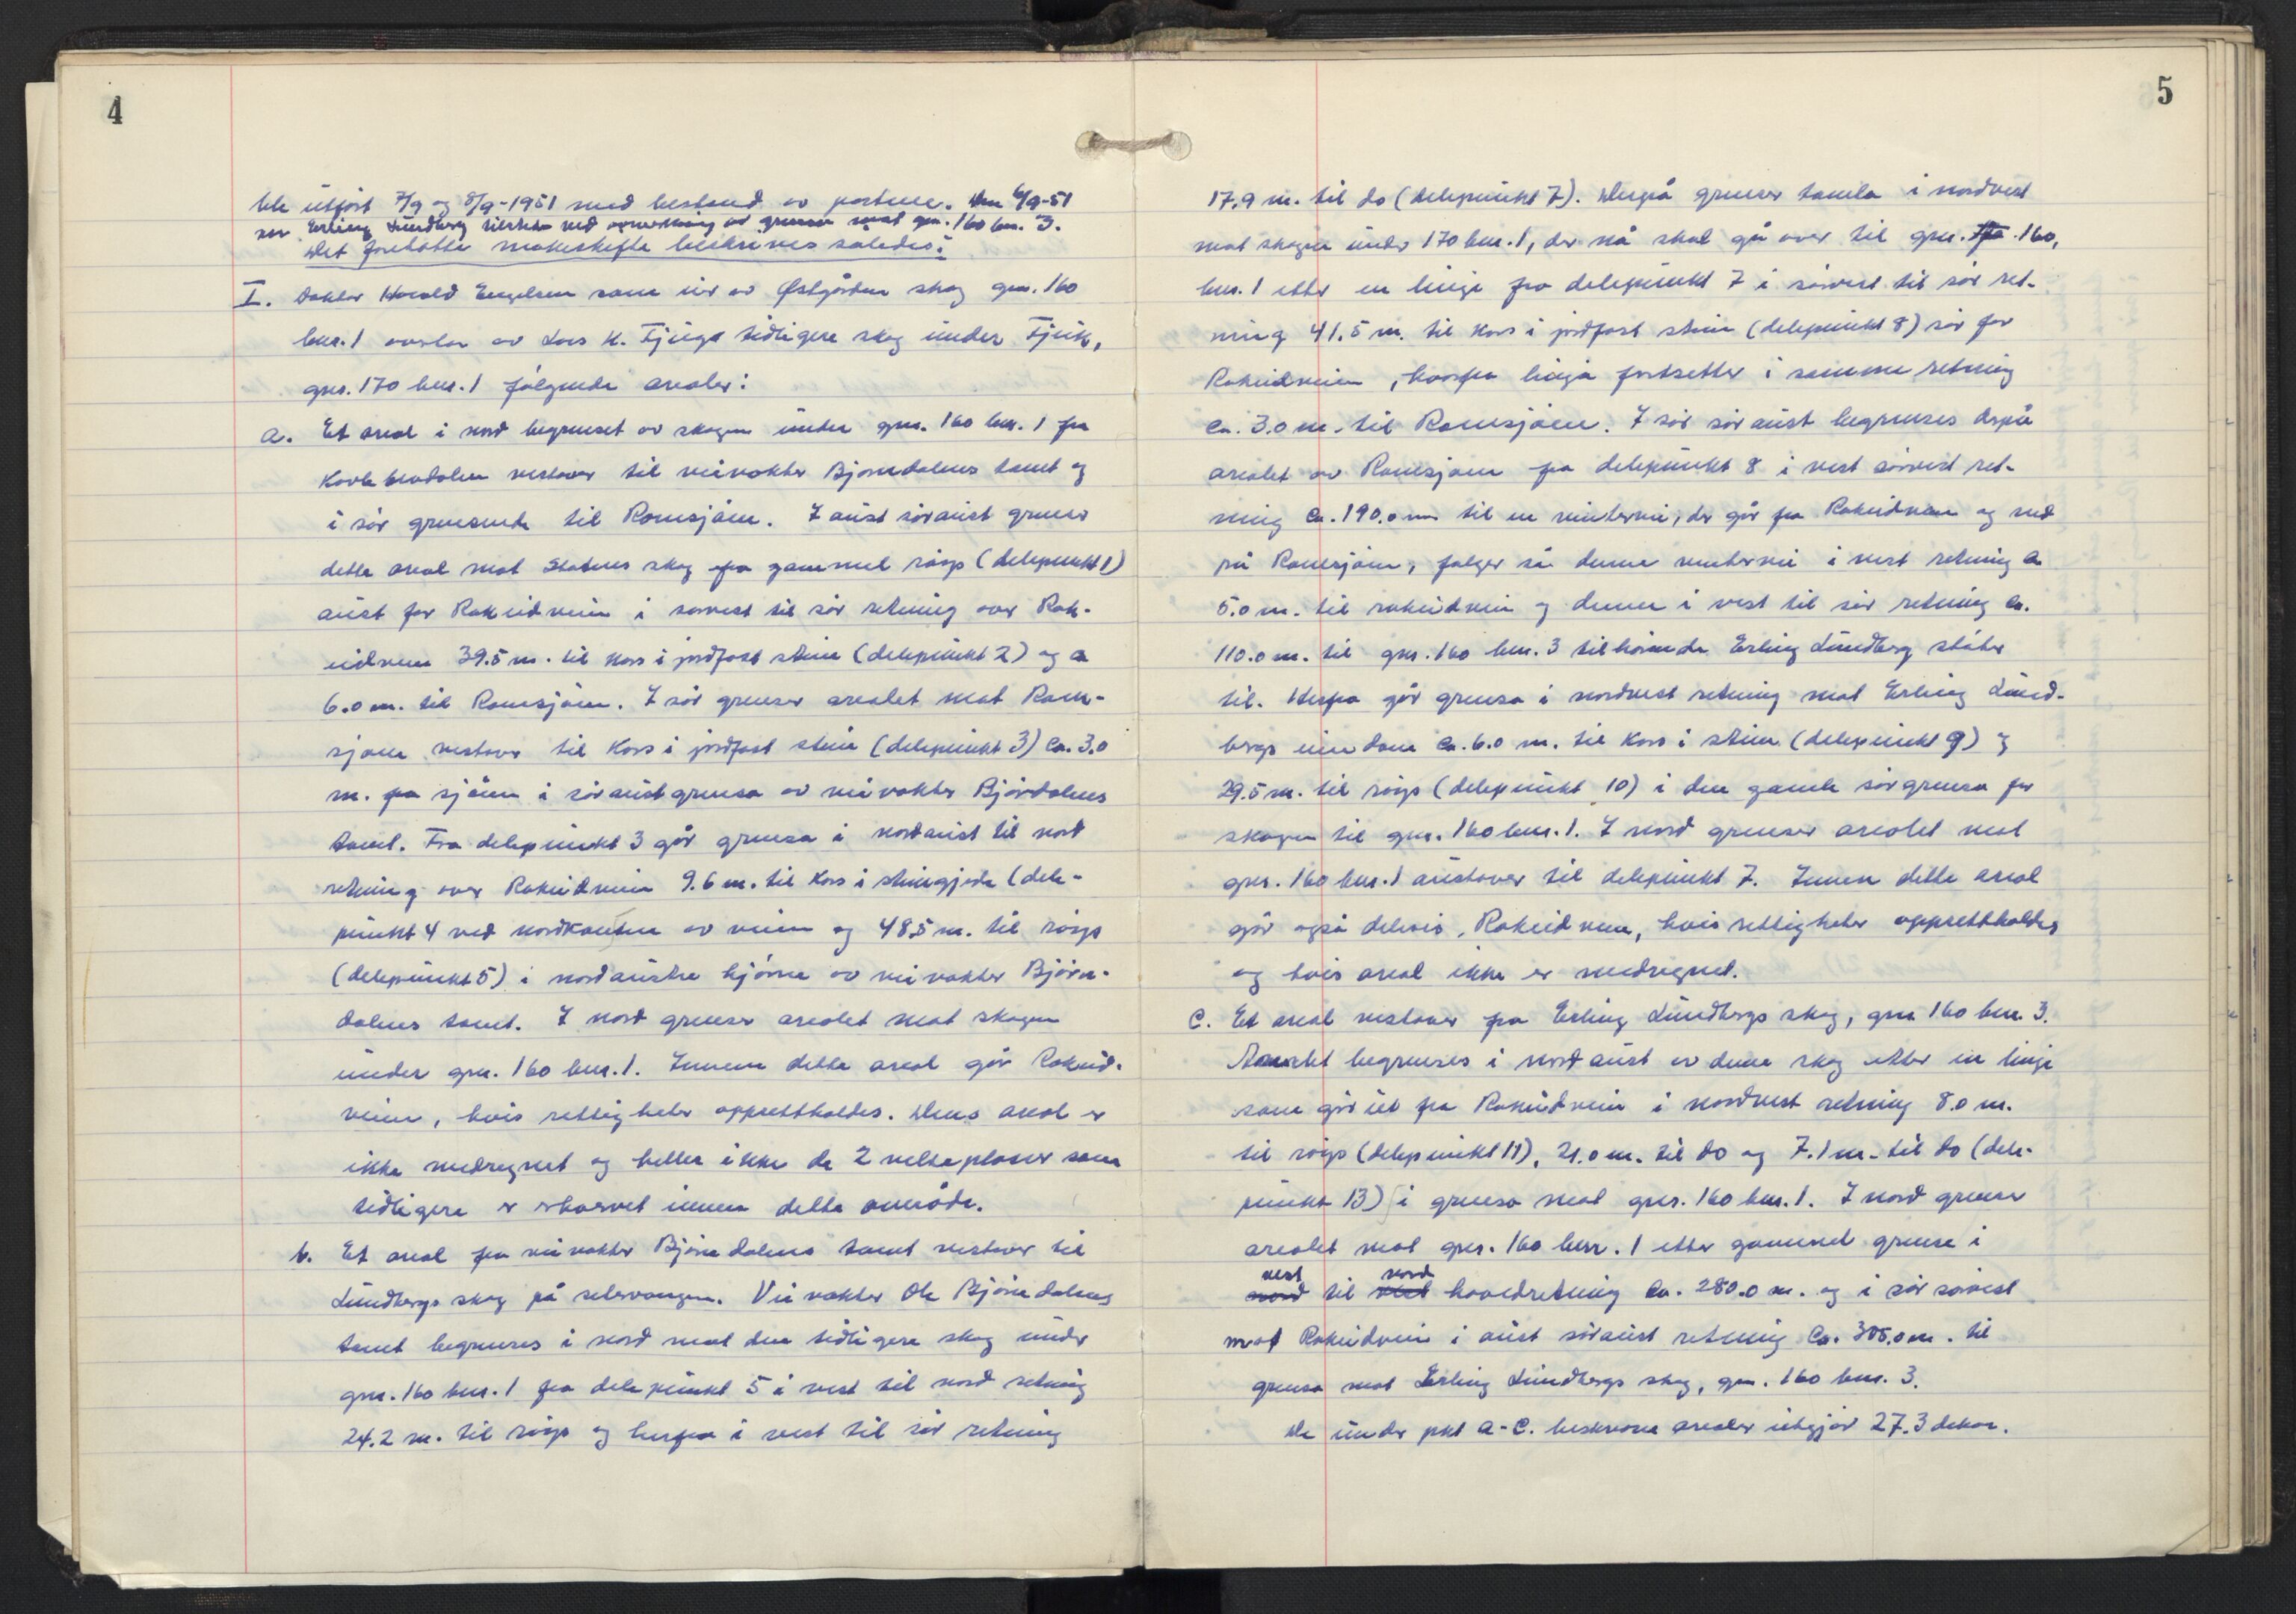 4
ble utført 7/9 og 8/9-1951 med bestand av partene. Den 6/9-51
var Erling Lundberg tilstede ved oppmerking av grensa mot gnr. 160 bnr. 3.
Det foretatte makeskifte beskrives således:
I. Doktor Harald Engelsen som eier av Østgården skog gnr. 160
bnr. 1 overtar av Lars K. tidligere skog under Fjuk,
gnr. 170 bnr. 1 følgende arealer:
a. Et areal i nord begrenset av skogen under gnr. 160 bnr. 1 fra
vestover til veivokter Bjørndalens tomt og
i sør grensende til Romsjøen. I aust søraust grenser
dette areal mot Statens skog fra gammel røys (delepunkt 1)
aust for Rakeidveien i sørvest til sør retning over Rak-
eidveien 39.5 m. til kors i jordfast stein (delepunkt 2) og ca
6.0 m. til Romsjøen. I sør grenser arealet mot Rom-
sjøen vestover til kors i jordfast stein (delepunkt 3) ca. 3.0
m. fra sjøen i søraustgrensa av veivokter Bjørdalens
tomt. Fra delepunkt 3 går grensa i nordaust til nord
retning over Rakeidveien 9.6 m. til kors i steingjerde (dele-
punkt 4 ved nordkanten av veien og 48.5 m. til røys
(delepunkt 5) i nordaustre hjørne av veivokter Bjørn-
dalens tomt. I nord grenser arealet mot skogen
under gnr. 160 bnr. 1. Innen dette areal går Rakeid-
veien, hvis rettigheter opprettholdes. Dens areal er
ikke medregnet og heller ikke de 2 velteplasser som
tidligere er ervervet innen dette område.
b. Et areal fra veivokter Bjørndalens tomt vestover til
Lundbergs skog på . Veivokter Ole Bjørndalens
tomt begrenses i nord mot den tidligere skog under
gnr. 160 bnr. 1 fra delepunkt 5 i vest til nord retning
24.2 m. til røys og herfra i vest til sør retning
5
17.9 m. til do (delepunkt 7). Derpå grenser tomta i nordvest
mot skogen under 170 bnr. 1, der nå skal gå over til gnr. 160,
bnr. 1 etter en linje fra delepunkt 7 i sørvest til sør ret-
ning 41.5 m. til kors i jordfast stein (delepunkt 8) sør for
Rakeidveien, hvorfra linja fortsetter i samme retning
ca. 3.0 m. til Romsjøen. I sør søraust begrenses derpå
arealet av Romsjøen fra delepunkt 8 i vest sørvest ret-
ning ca. 190.0 m til en vintervei, der går fra Rakeidveien og ned
på Romsjøen, følger så denne vintervei i vest retning ca
5.0 m. til rakeidveien og denne i vest til sør retning ca.
110.0 m. til gnr. 160 bnr. 3 tilhørende Erling Lundberg støter
til. Herfra går grensa i nordvest retning mot Erling Lund-
bergs eiendom ca. 6.0 m. til kors i stein (delepunkt 9) og
29.5 m. til røys (delepunkt 10) i den gamle sørgrensa for
skogen til gnr. 160 bnr. 1. I nord grenser arealet mot
gnr. 160 bnr. 1 austover til delepunkt 7. Innen dette areal
går også delvis, Rakeidveien, hvis rettigheter opprettholdes
og hvis areal ikke er medregnet.
c. Et areal vestover fra Erling Lundbergs skog, gnr 160 bnr. 3.
begrenses i nordaust av denne skog etter en linje
som går ut fra Rakeidveien i nordvest retning 8.0 m.
til røys (delepunkt 11), 21.0 m. til do og 7.1 m. til do (dele-
punkt 13) i grensa mot gnr. 160 bnr. 1. I nord grenser
arealet mot gnr. 160 bnr. 1 etter gammel grense i
vest nord
nord til vest hovedretning ca. 280.0 m. og i sør sørvest
mot Rakeidveien i aust søraust retning ca. 305.0 m. til
grensa mot Erling Lundbergs skog, gnr. 160 bnr. 3.
De under pkt a-c. beskrevne arealer utgjør 27.3 dekar.